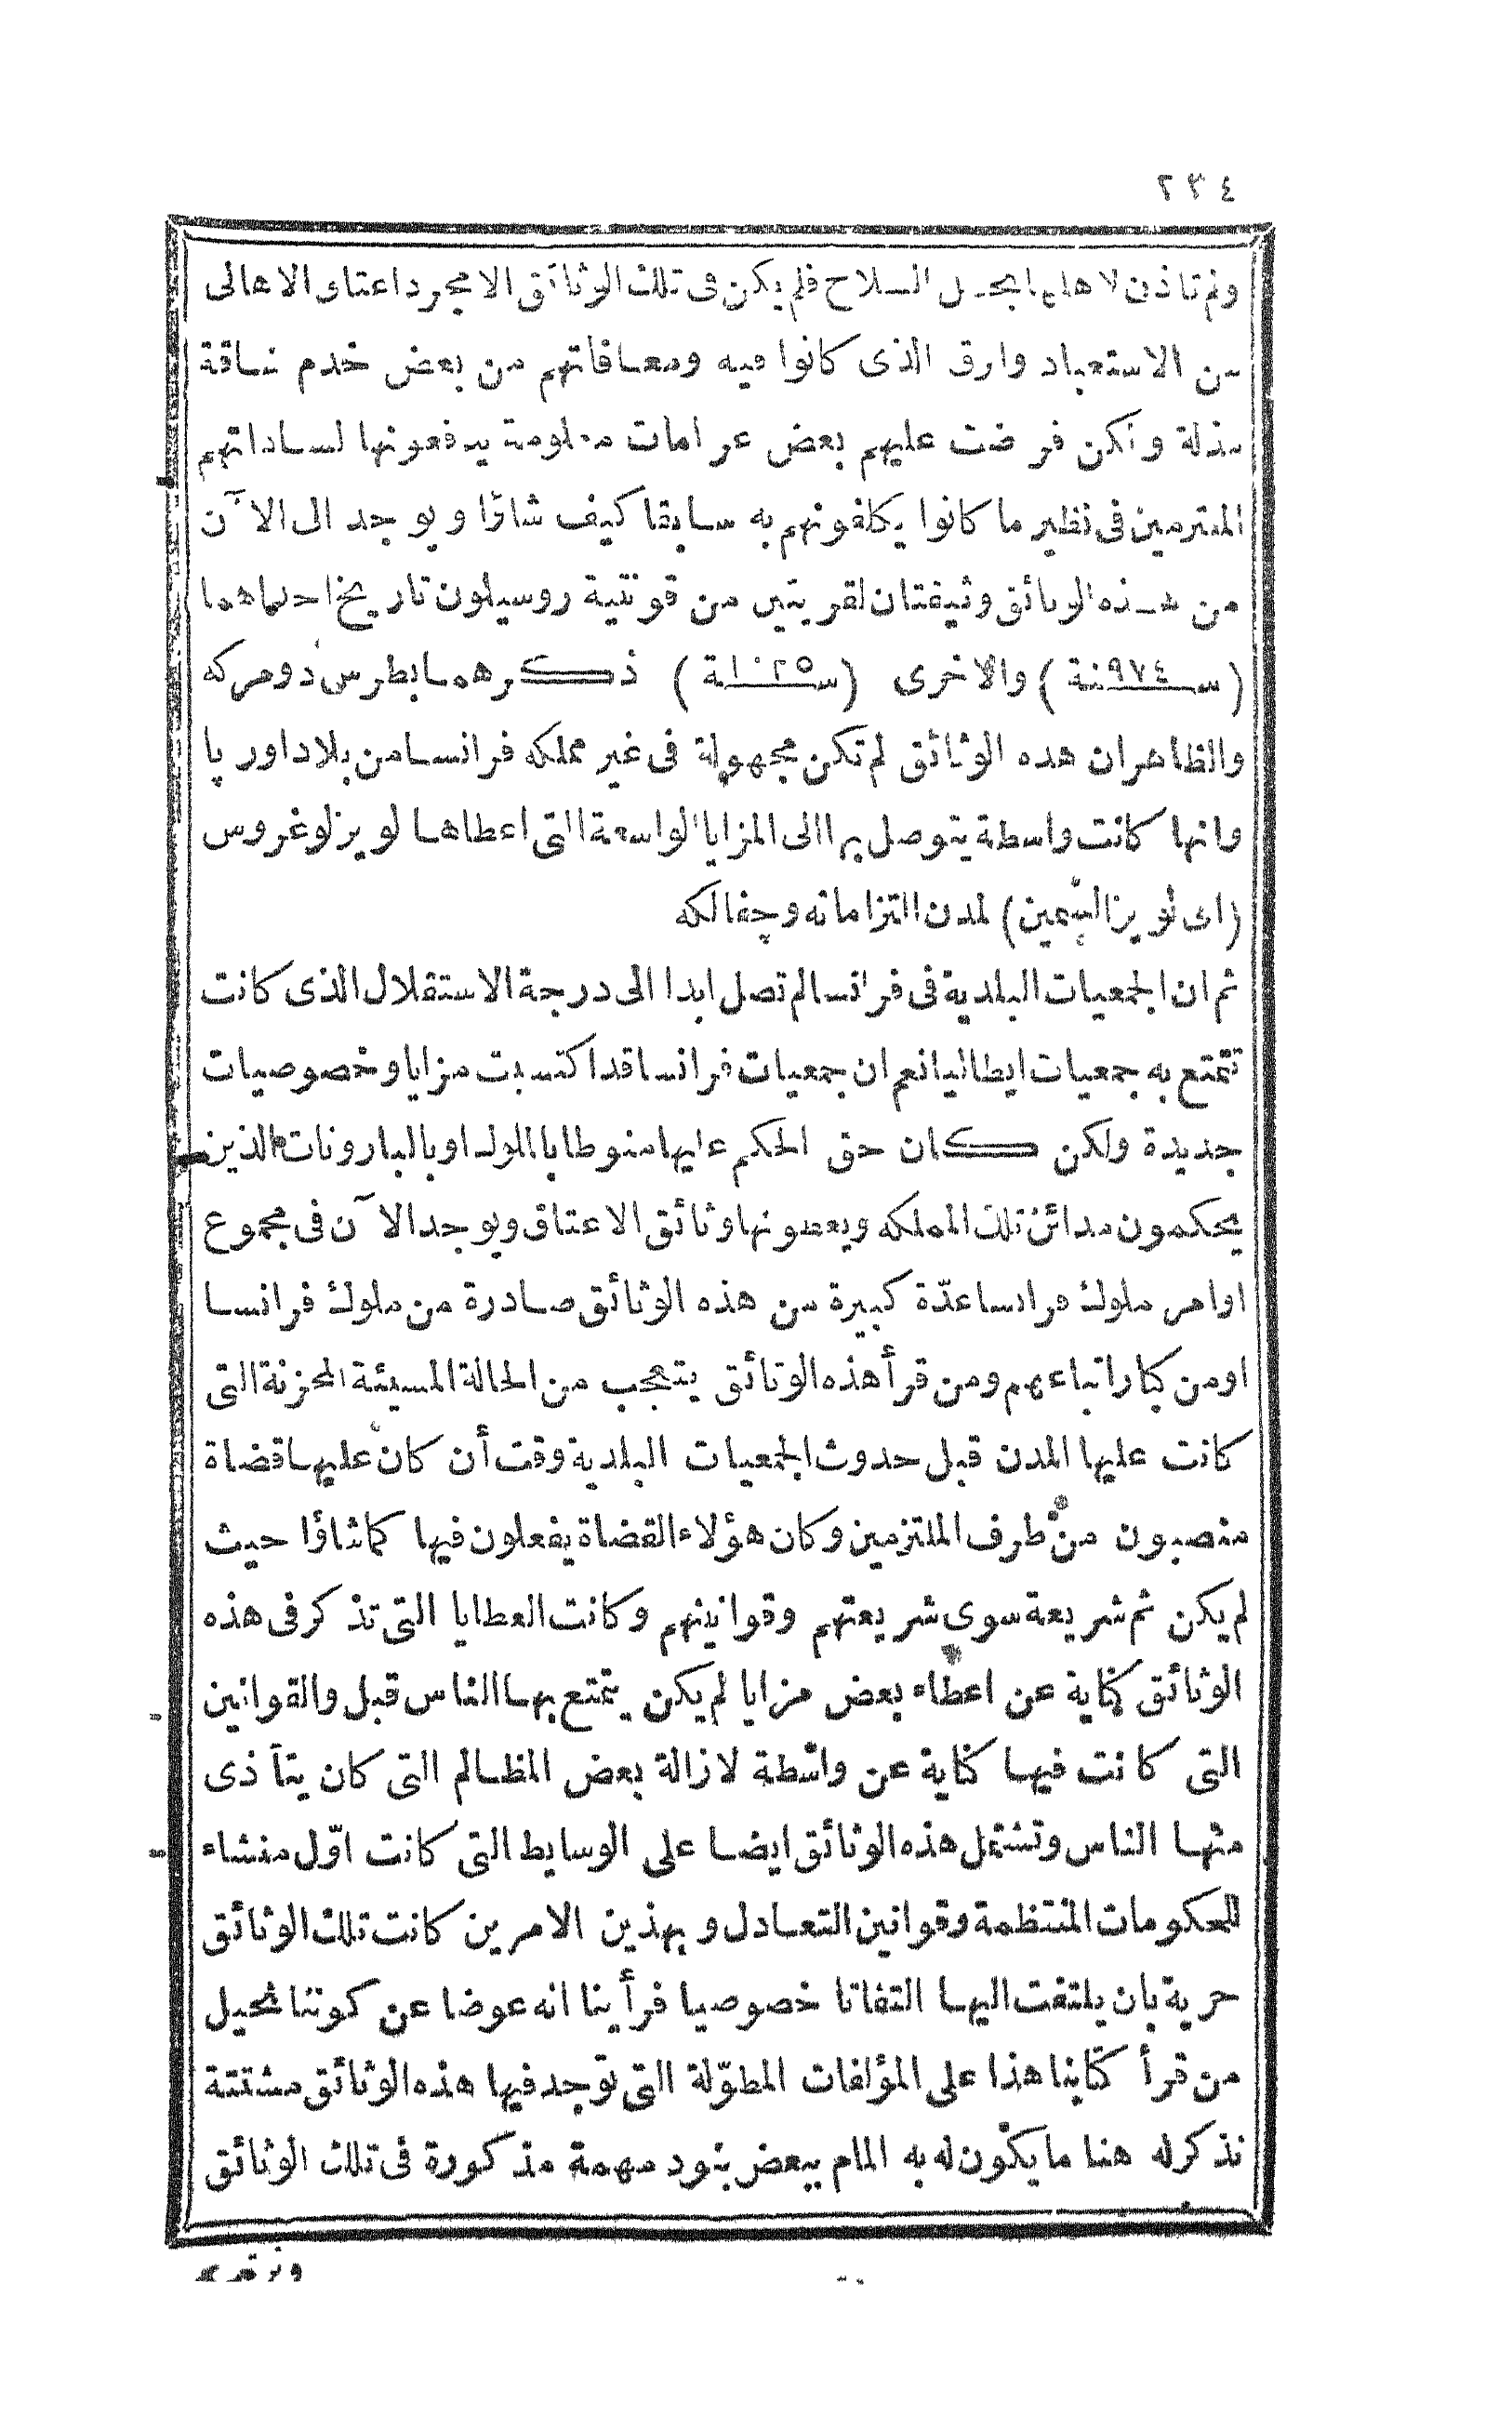 ٢٣٤
ولم تاذن لاهلها بحمل السلاح فلم يكن فى تلك الوثائق الا مجرد اعتاق الاهالى
من الاستعباد والرق الذى كانوا فيه ومعافاتهم من بعض خدم شاقة
مذلة ولكن فرضت عليهم بعض غرامات معلومة يدفعونها لساداتهم
الملتزمين فى نظير ما كانوا يكلفونهم به سابقا كيف شاؤا ويوجد الى الآن
من هذه الوثائق وثيقتان لقريتين من قونتية روسيلون تاريخ احداهما
(سـ٩٧٤ـنة) والاخرى (سـ١٠٢٥ـنة) ذكرهما بطرس دومركه
والظاهر ان هذه الوثائق لم تكن مجهولة فى غير مملكة فرانسا من بلاد اوربا
وانها كانت واسطة يتوصل بها الى المزايا الواسعة التى اعطاها لويز لوغروس
(اى لويز السمين) لمدن التزاماته وجفالكه
ثم ان الجمعيات البلدية فى فرانسا لم تصل ابدا الى درجة الاستقلال الذى كانت
تتمتع به جمعيات ايطاليا نعم ان جمعيات فرانسا قد اكتسبت مزايا وخصوصيات
جديدة ولكن كان حق الحكم عليها منوطا بالملوك او بالبارونات الذين
يحكمون مدائن تلك المملكه ويعطونها وثائق الاعتاق ويوجد الآن فى مجموع
اوامر ملوك فرانسا عدّة كبيرة من هذه الوثائق صادرة من ملوك فرانسا
اومن كبار اتباعهم ومن قرأ هذه الوثائق يتعجب من الحالة المسيئة المحزنة التى
كانت عليها المدن قبل حدوث الجمعيات البلدية وقت أن كان عليها قضاة
منصبون من طرف الملتزمين وكان هؤلاء القضاة يفعلون فيها كما شاؤا حيث
لم يكن ثم شريعة سوى شريعتهم وقوانينهم وكانت العطايا التى تذكر فى هذه
الوثائق كناية عن اعطاء بعض مزايا لم يكن يتمتع بها الناس قبل والقوانين
التى كانت فيها كناية عن واسطة لازالة بعض المظالم التى كان يتأذى
منها الناس وتشتمل هذه الوثائق ايضا على الوسايط التى كانت اوّل منشاء
للحكومات المنتظمة وقوانين التعادل وبهذين الامرين كانت تلك الوثائق
حرية بان يلتفت اليها التفاتا خصوصيا فرأينا انه عوضا عن كوننا نحيل
من قرأ كتابنا هذا على المؤلفات المطوّلة التى توجد فيها هذه الوثائق مشتتة
نذكر له هنا ما يكون له به المام ببعض بنود مهمة مذكورة فى تلك الوثائق